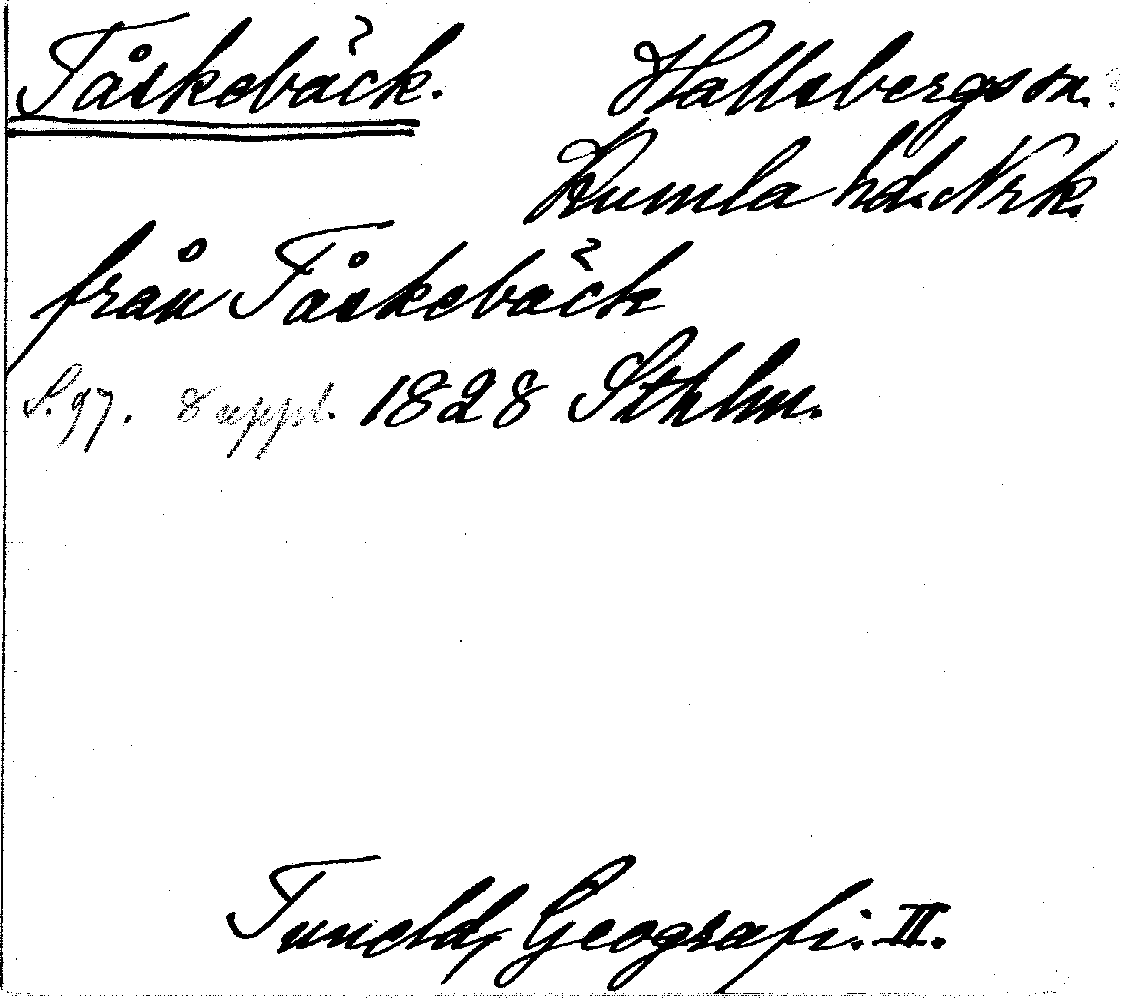 Tåskebäck. Hallsbergs sn.
Kumla hd. Nrk.
från Tåskebäck
S. 97. Suppl. 1828 Sthlm.
Tuneld, Geografi. II.